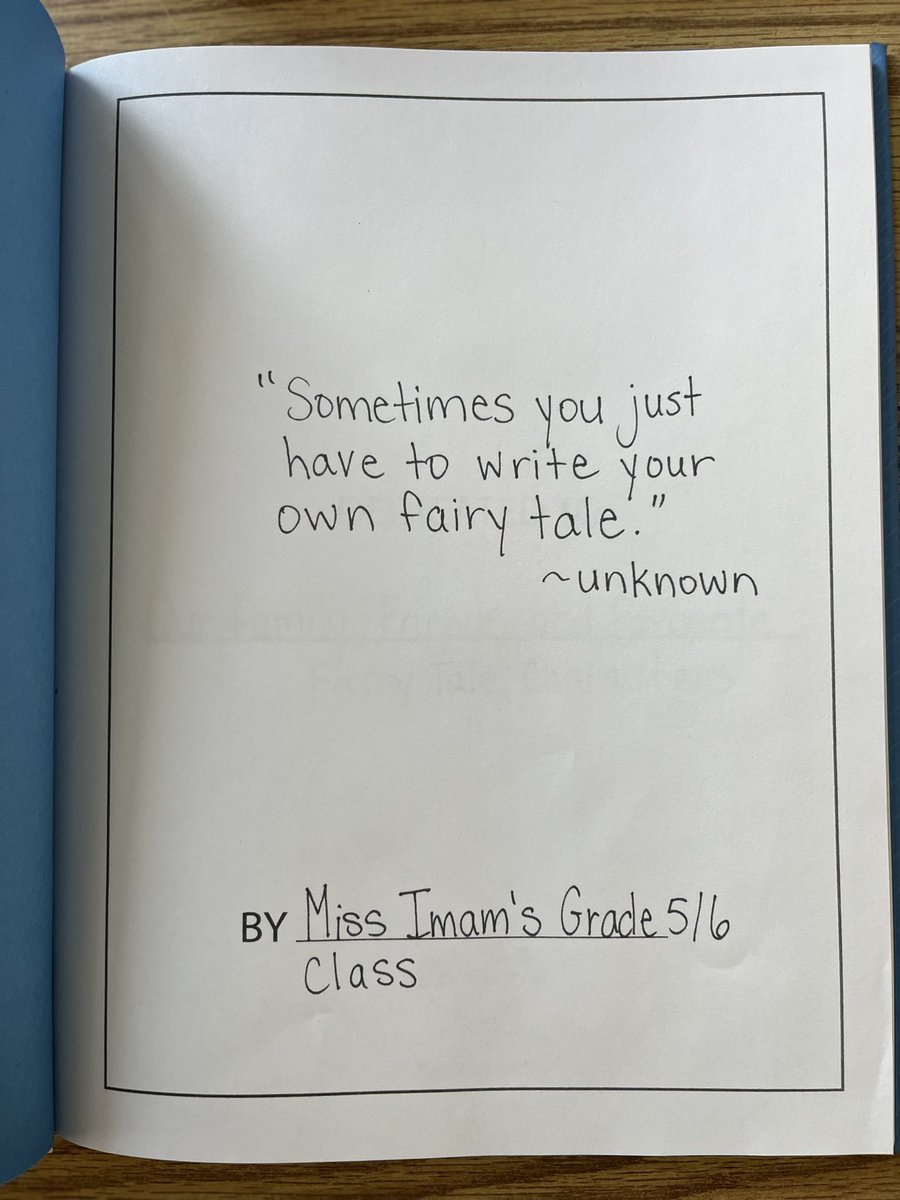 "Sometimes you just
have to write your
own fairy tale."
~unknown
BY Miss Imam's Grade 5/6
Class